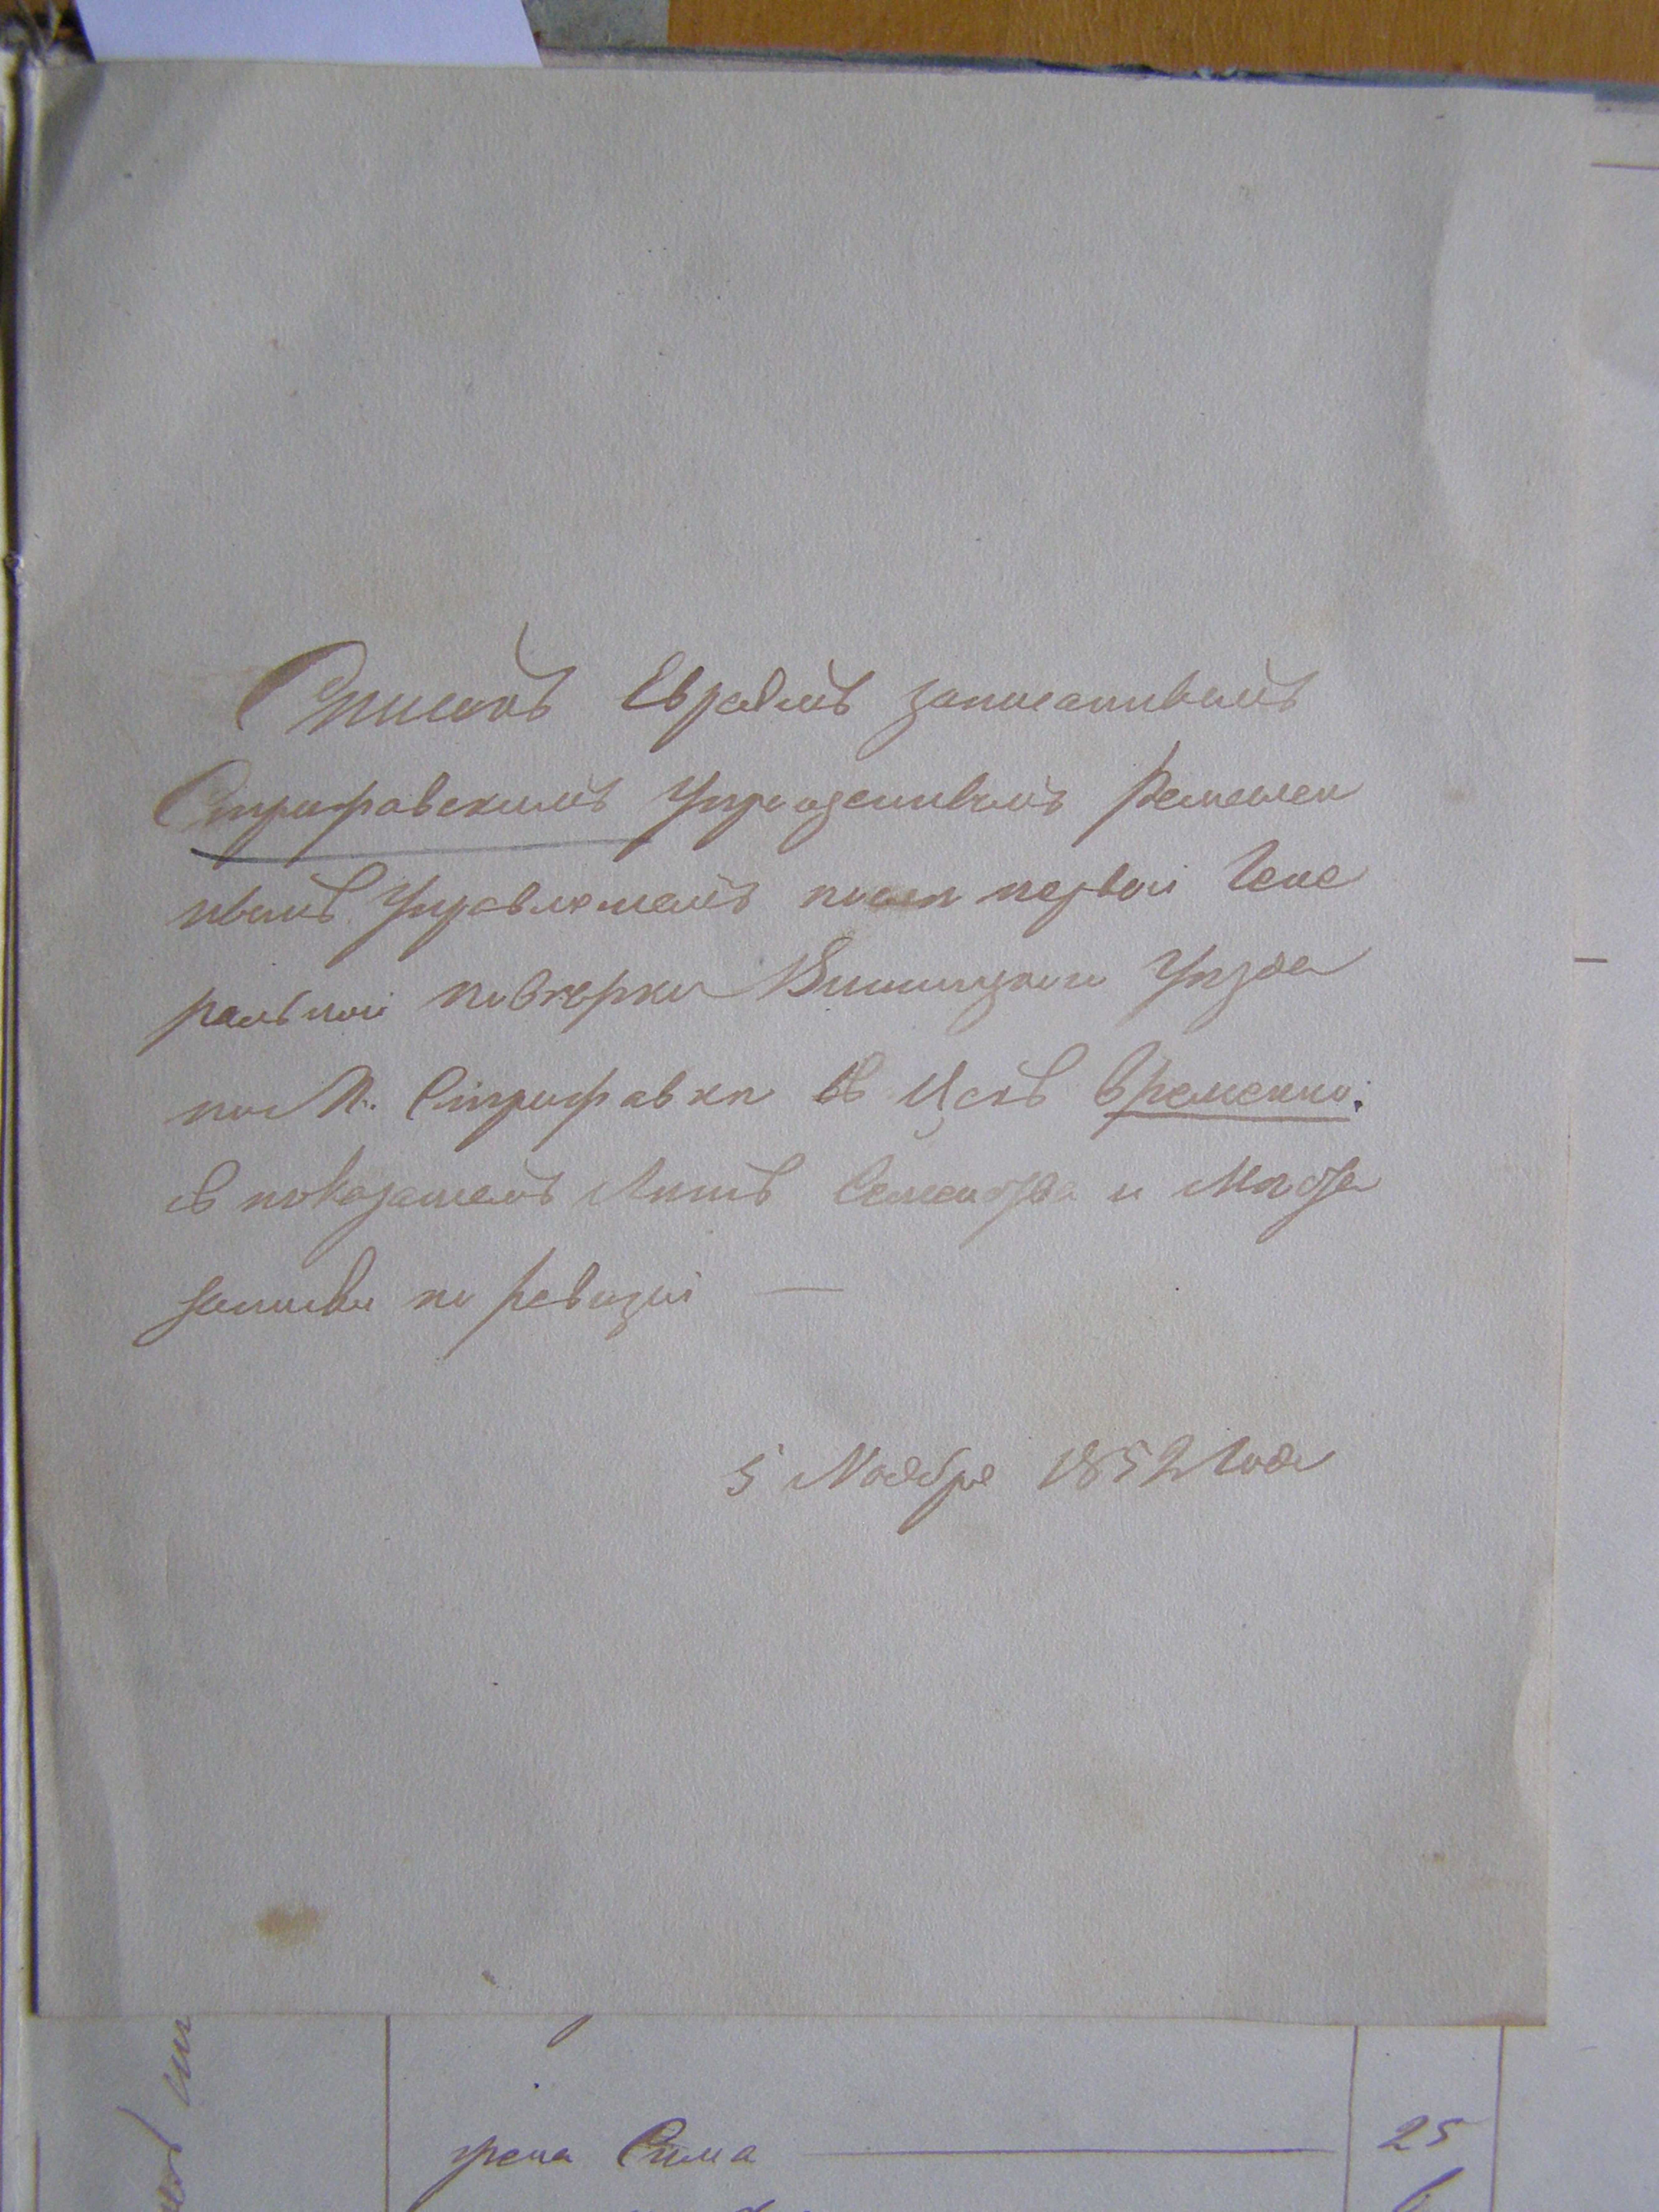 Списокъ Евреямъ записаннымъ
Стрижавскимъ Упраздненнымъ Ремеслен
нымъ Управленіемъ после первой Гене
ральной поверки Винницкого Уезда
по М. Стрижавке въ Цехъ временно:
съ показаніемъ Летъ Семейства и Места
записки по ревизіи —
5 Ноября 1852 Года
жена Сима 25